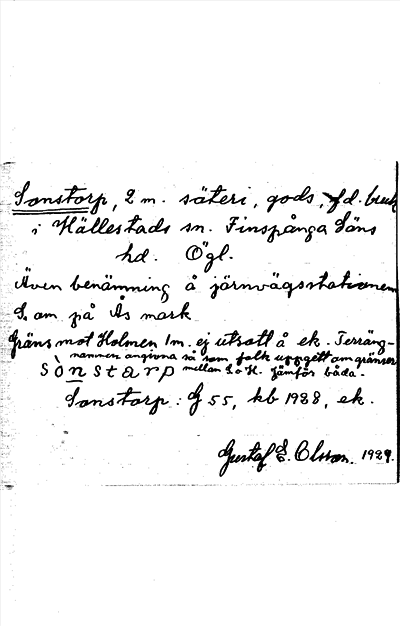 Sonstorp, 2 m. säteri, gods, f.d. bruk
i Hällestads sn. Finspånga läns
hd. Ögl.
Även benämning å järnvägsstationen
S. om på Ås mark
Gräns mot Holmen 1m. ej utsatt å ek. Terräng-
namnen angivna så som folk uppgett om gränsen
mellan S. o H. Jämför båda.
sònstarp
Sonstorp: G 55, kb 1928, ek.
Gustaf E. Olsson. 1929.